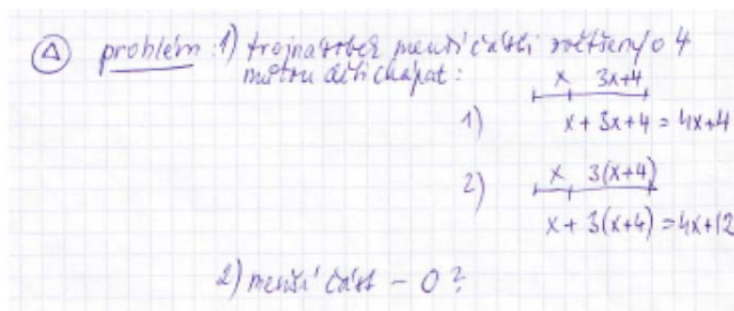 △ problém: 1) trojnásobek menší části zvětšený o 4
mohou děti chápat:
x 3x+4
1) x + 3x + 4 = 4x+4
x 3(x+4)
2)
x + 3(x+4) = 4x+12
2) menší část – 0?